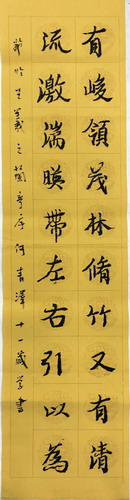 有峻領茂林脩竹又有清
流激湍暎帶左右引以為
節临王羲之蘭亭序何吉澤十一歲学書